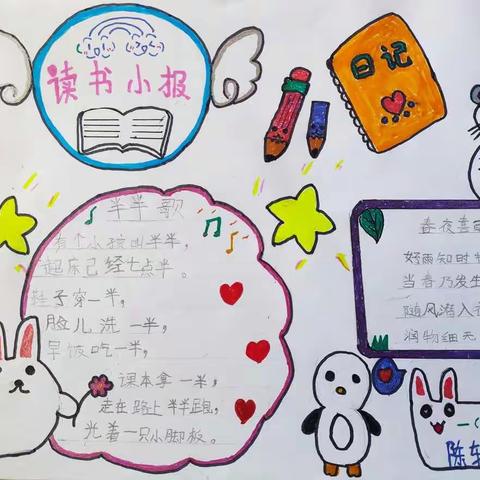 读书小报
日记
半半歌
有个小孩叫半半,
起床已经七点半。
鞋子穿一半,
脸儿洗一半,
早饭吃一半,
课本拿一半,
走在路上半半跑,
光着一只小脚板。
春夜喜
好雨知时
当春乃发生
随风潜入
润物细无
一(
陈